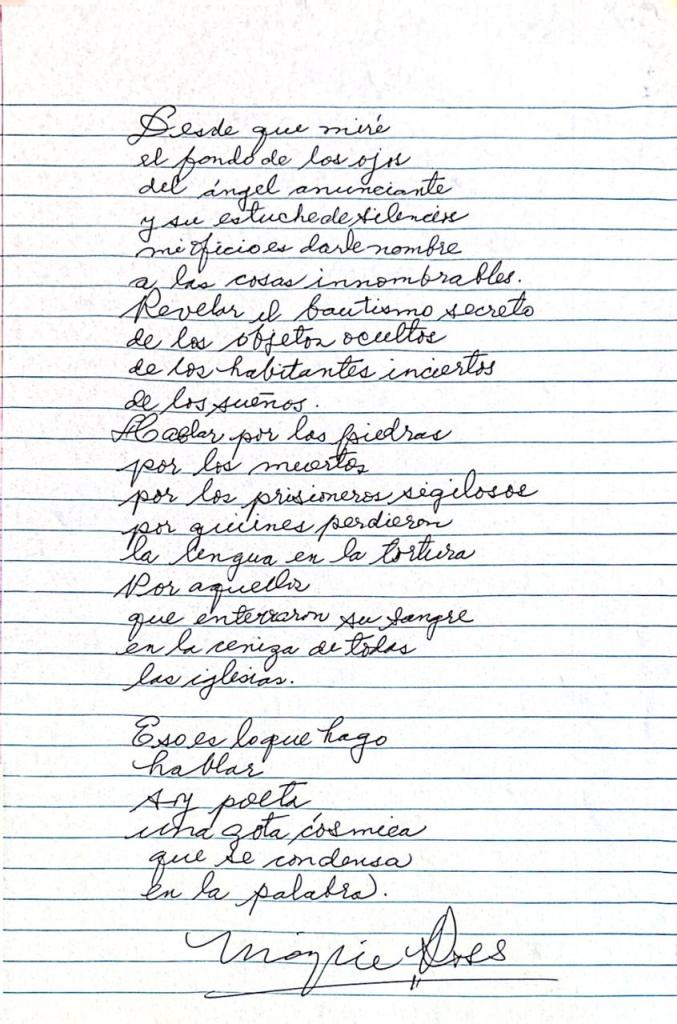 Desde que miré
el fondo de los ojos
del ángel anunciante
y su estuche de silencios
mi oficio es darle nombre
a las cosas innombrables.
Revelar el bautismo secreto
de los objetos ocultos
de los habitantes inciertos
de los sueños.
Hablar por las piedras
por los muertos
por los prisioneros sigilosos
por quiénes perdieron
la lengua en la tortura
Por aquellos
que enterraron su sangre
en la ceniza de todas
las iglesias.
Eso es lo que hago
hablar
soy poeta
una gota cósmica
que se condensa
en la palabra.